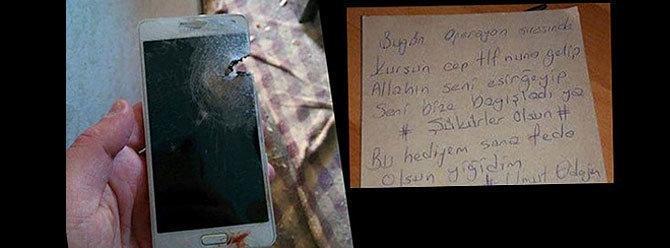 Bugün operasyon sırasında
Kurşun cep tlf nuna gelip
Allahın seni esirgeyip
Seni bize bağışladı ya
# Şükürler Olsun #
Bu hediyem sana feda
Olsun yiğidim
# Umut